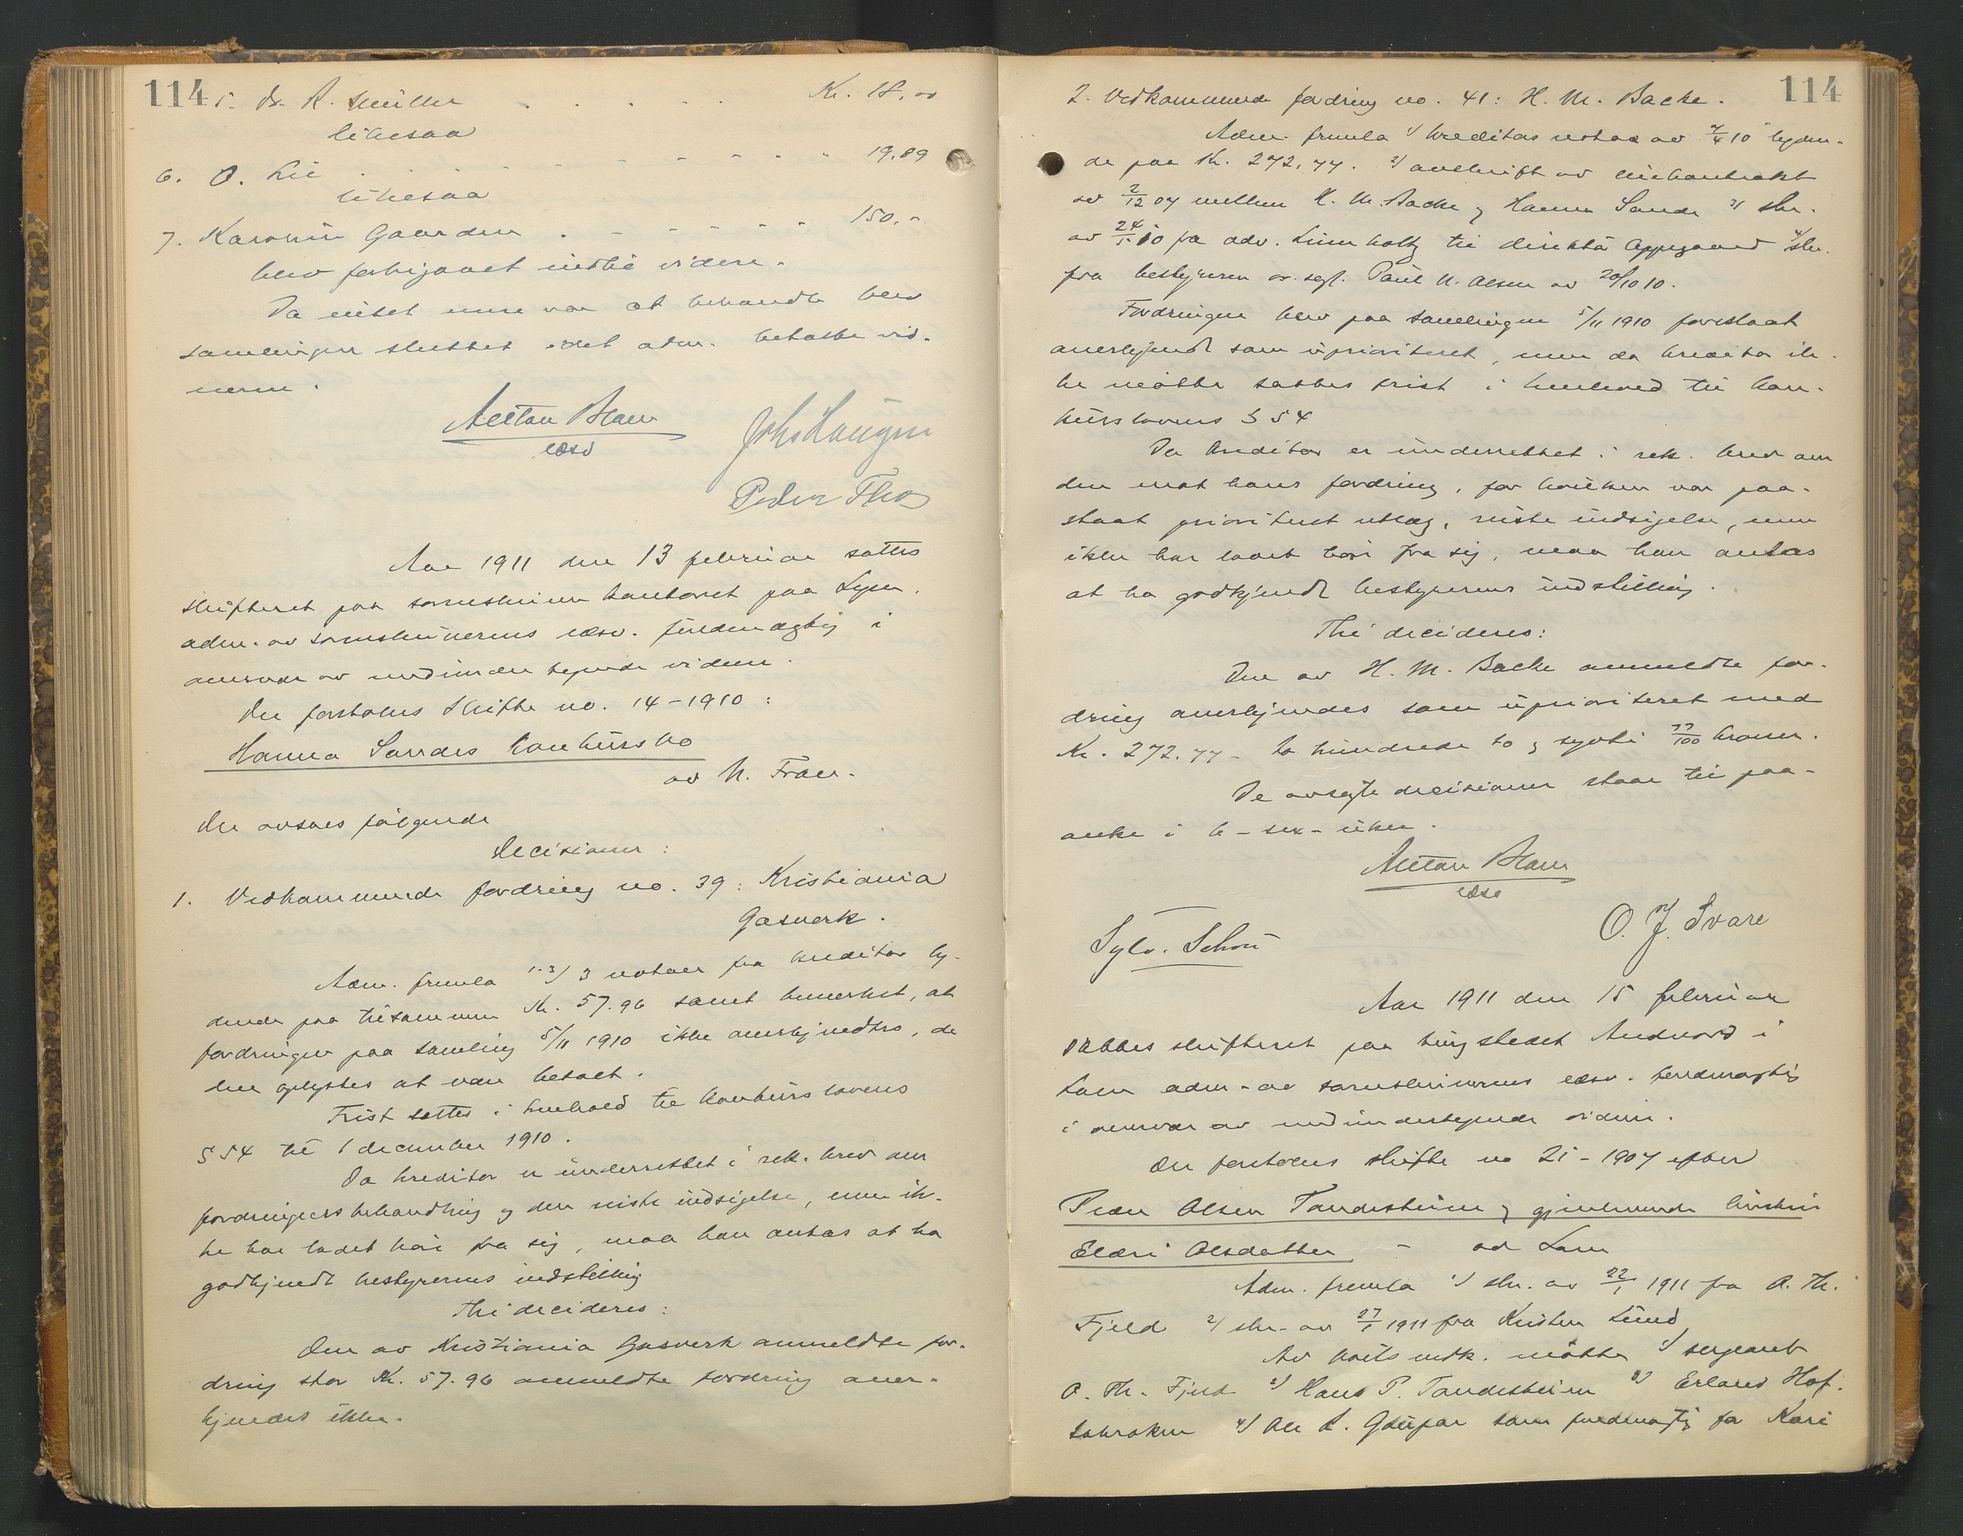 114
5. Dr. R. Müller . . . . . Kr. 18.00
likesaa
6. O. Lie . . . . . . . 19.89
likesaa
7. Karoline Gaarden . . . . . . 150.-
blev forbigaaet indtil videre.
Da intet mere var at behandle blev
samlingen sluttet idet adm. betalte vid-
nerne.
Anton Blom
edsv
Johs Haugen
Peder Tho
Aar 1911 den 13 februar sattes
skifteret paa sorenskriver kontoret paa
adm. av sorenskriverens edsv. fuldmægtig i
overvær av medundertegnede vidner.
Der foretoges Skifte no. 14-1910:
Hanna Sandes konkursbo
av N. Fron.
Der avsaes følgende
Decisioner:
1. Vedkommende fordring no. 39: Kristiania
Gasverk.
Adm. fremla 1-3) 3 notaer fra kreditor ly-
dende paa tilsammen Kr. 57.96 samt bemerket, at
fordringen paa samling 5/11 1910 ikke anerkjendtes, da
den oplystes at være betalt.
Frist sattes i henhold til konkurslovens
§ 54 til 1 december 1910.
Da kreditor er underrettet i rek. brev om
fordringens behandling og den reiste indsigelse, men ik-
ke har ladet høre fra sig, maa han antas at ha
godkjendt bestyrerens indstilling
Thi decideres:
Den av Kristiania Gasverk anmeldte for-
dring stor Kr. 57.96 anmeldte fordring aner-
kjendes ikke.
114
2. Vedkommende fordring no. 41: H. M. Backe.
Adm. fremla 1) kreditors nota av 7/4 10 lyden-
de paa Kr. 272.77. 2) avskrift av leiekontrakt
av 2/12 07 mellem H. M. Backe og Hanna Sande 3) skr.
av 24/5 10 fra adv. til direktør Oppegaard 4) skr.
fra bestyreren o.r.sagf. Paul N. Olsen av 20/10 10.
Fordringen blev paa samlingen 5/11 1910 foreslaat
anerkjendt som uprioriteret, men da kreditor ik-
ke møtte sattes frist i henhold til kon-
kurslovens § 54
Da kreditor er underrettet i rek. brev om
den mot hans fordring, for hvilken var paa-
staat prioritert utlæg, reiste indsigelse, men
ikke har ladet høre fra sig, maa han antas
at ha godkjendt bestyrerens indstilling.
Thi decideres:
Den av H. M. Backe anmeldte for-
dring anerkjendes som uprioriteret med
Kr. 272.77 - to hundrede to og sytti 77/100 kroner.
De avsagte decisioner staar til paa-
anke i 6 - sex - uker.
Anton Blom
edsv
Sylv. Schou
O. J. Svare
Aar 1911 den 15 februar
sattes skifteret paa tingstedet Andvord i
Lom adm. av sorenskriverens edsv. fuldmægtig
i overvær av medundertegnede vidner.
Der foretoges skifte no 21-1907 efter
Peder Olsen Tandesteien og gjenlevende hustru
Eldri Olsdatter - av Lom
Adm. fremla 1) skr. av 22/1 1911 fra O. Th.
Fjeld 2) skr. av 27/1 1911 fra Kristen Lund
Av vedk. møtte 1) sergeant
O. Th. Fjeld 2) Hans P. Tandesteien 3) Erland Hof-
4) Ole L. Gaupar som fuldmægtig for Kari